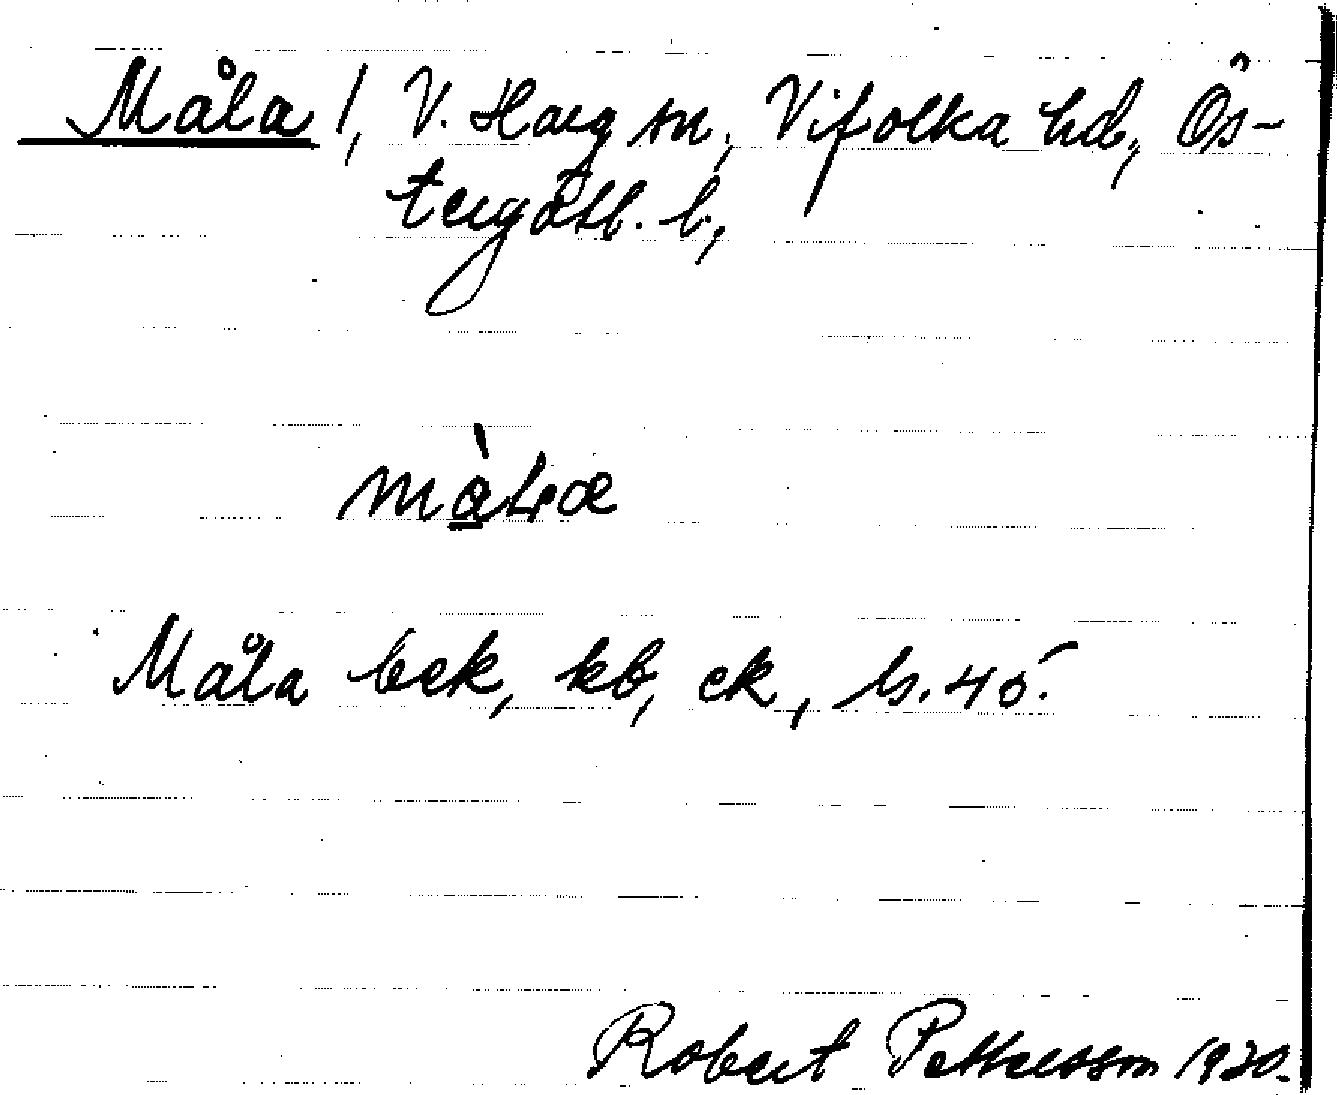 Måla /, V. Harg sn, Vifolka hd, Ös-
tergötl. l,
Måla bek, kb, ek, ls. 45.
Robert Pettersson 1930.